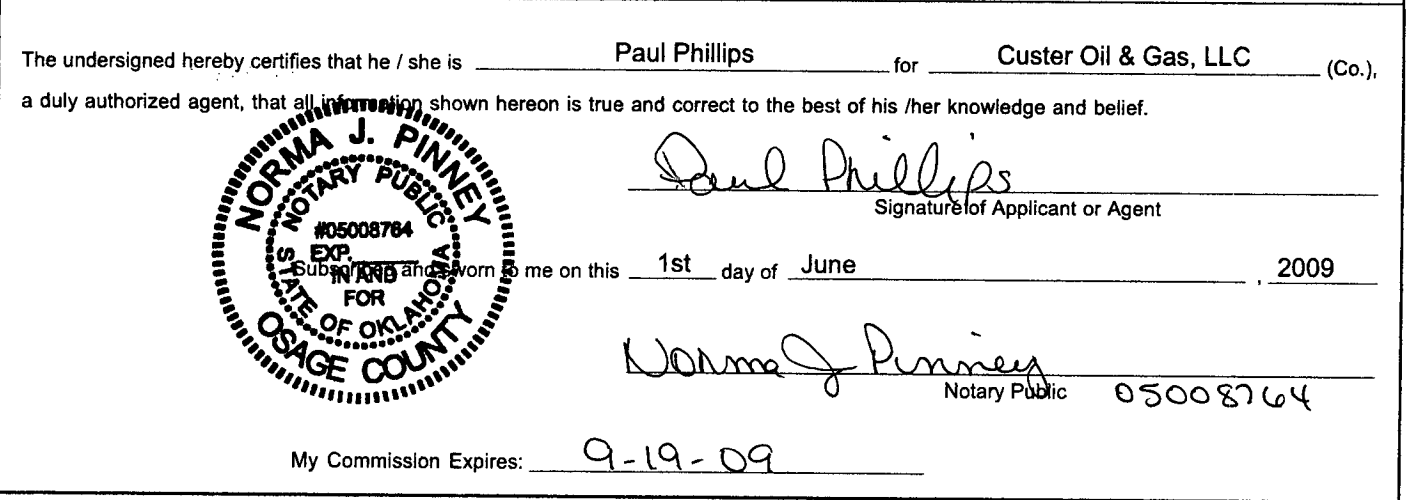 The undersigned hereby certifies that he / she is Paul Phillips for Custer Oil & Gas, LLC (Co.),
a duly authorized agent, that all information shown hereon is true and correct to the best of his /her knowledge and belief.
NORMA J. PINNEY
NOTARY PUBLIC
#05008764
EXP.
IN AND
FOR
STATE OF OKLAHOMA
OSAGE COUNTY
Paul Phillips
Signature of Applicant or Agent
Subscribed and sworn to me on this 1st day of June , 2009
Norma J Pinney
Notary Public 05008764
My Commission Expires: 9-19-09